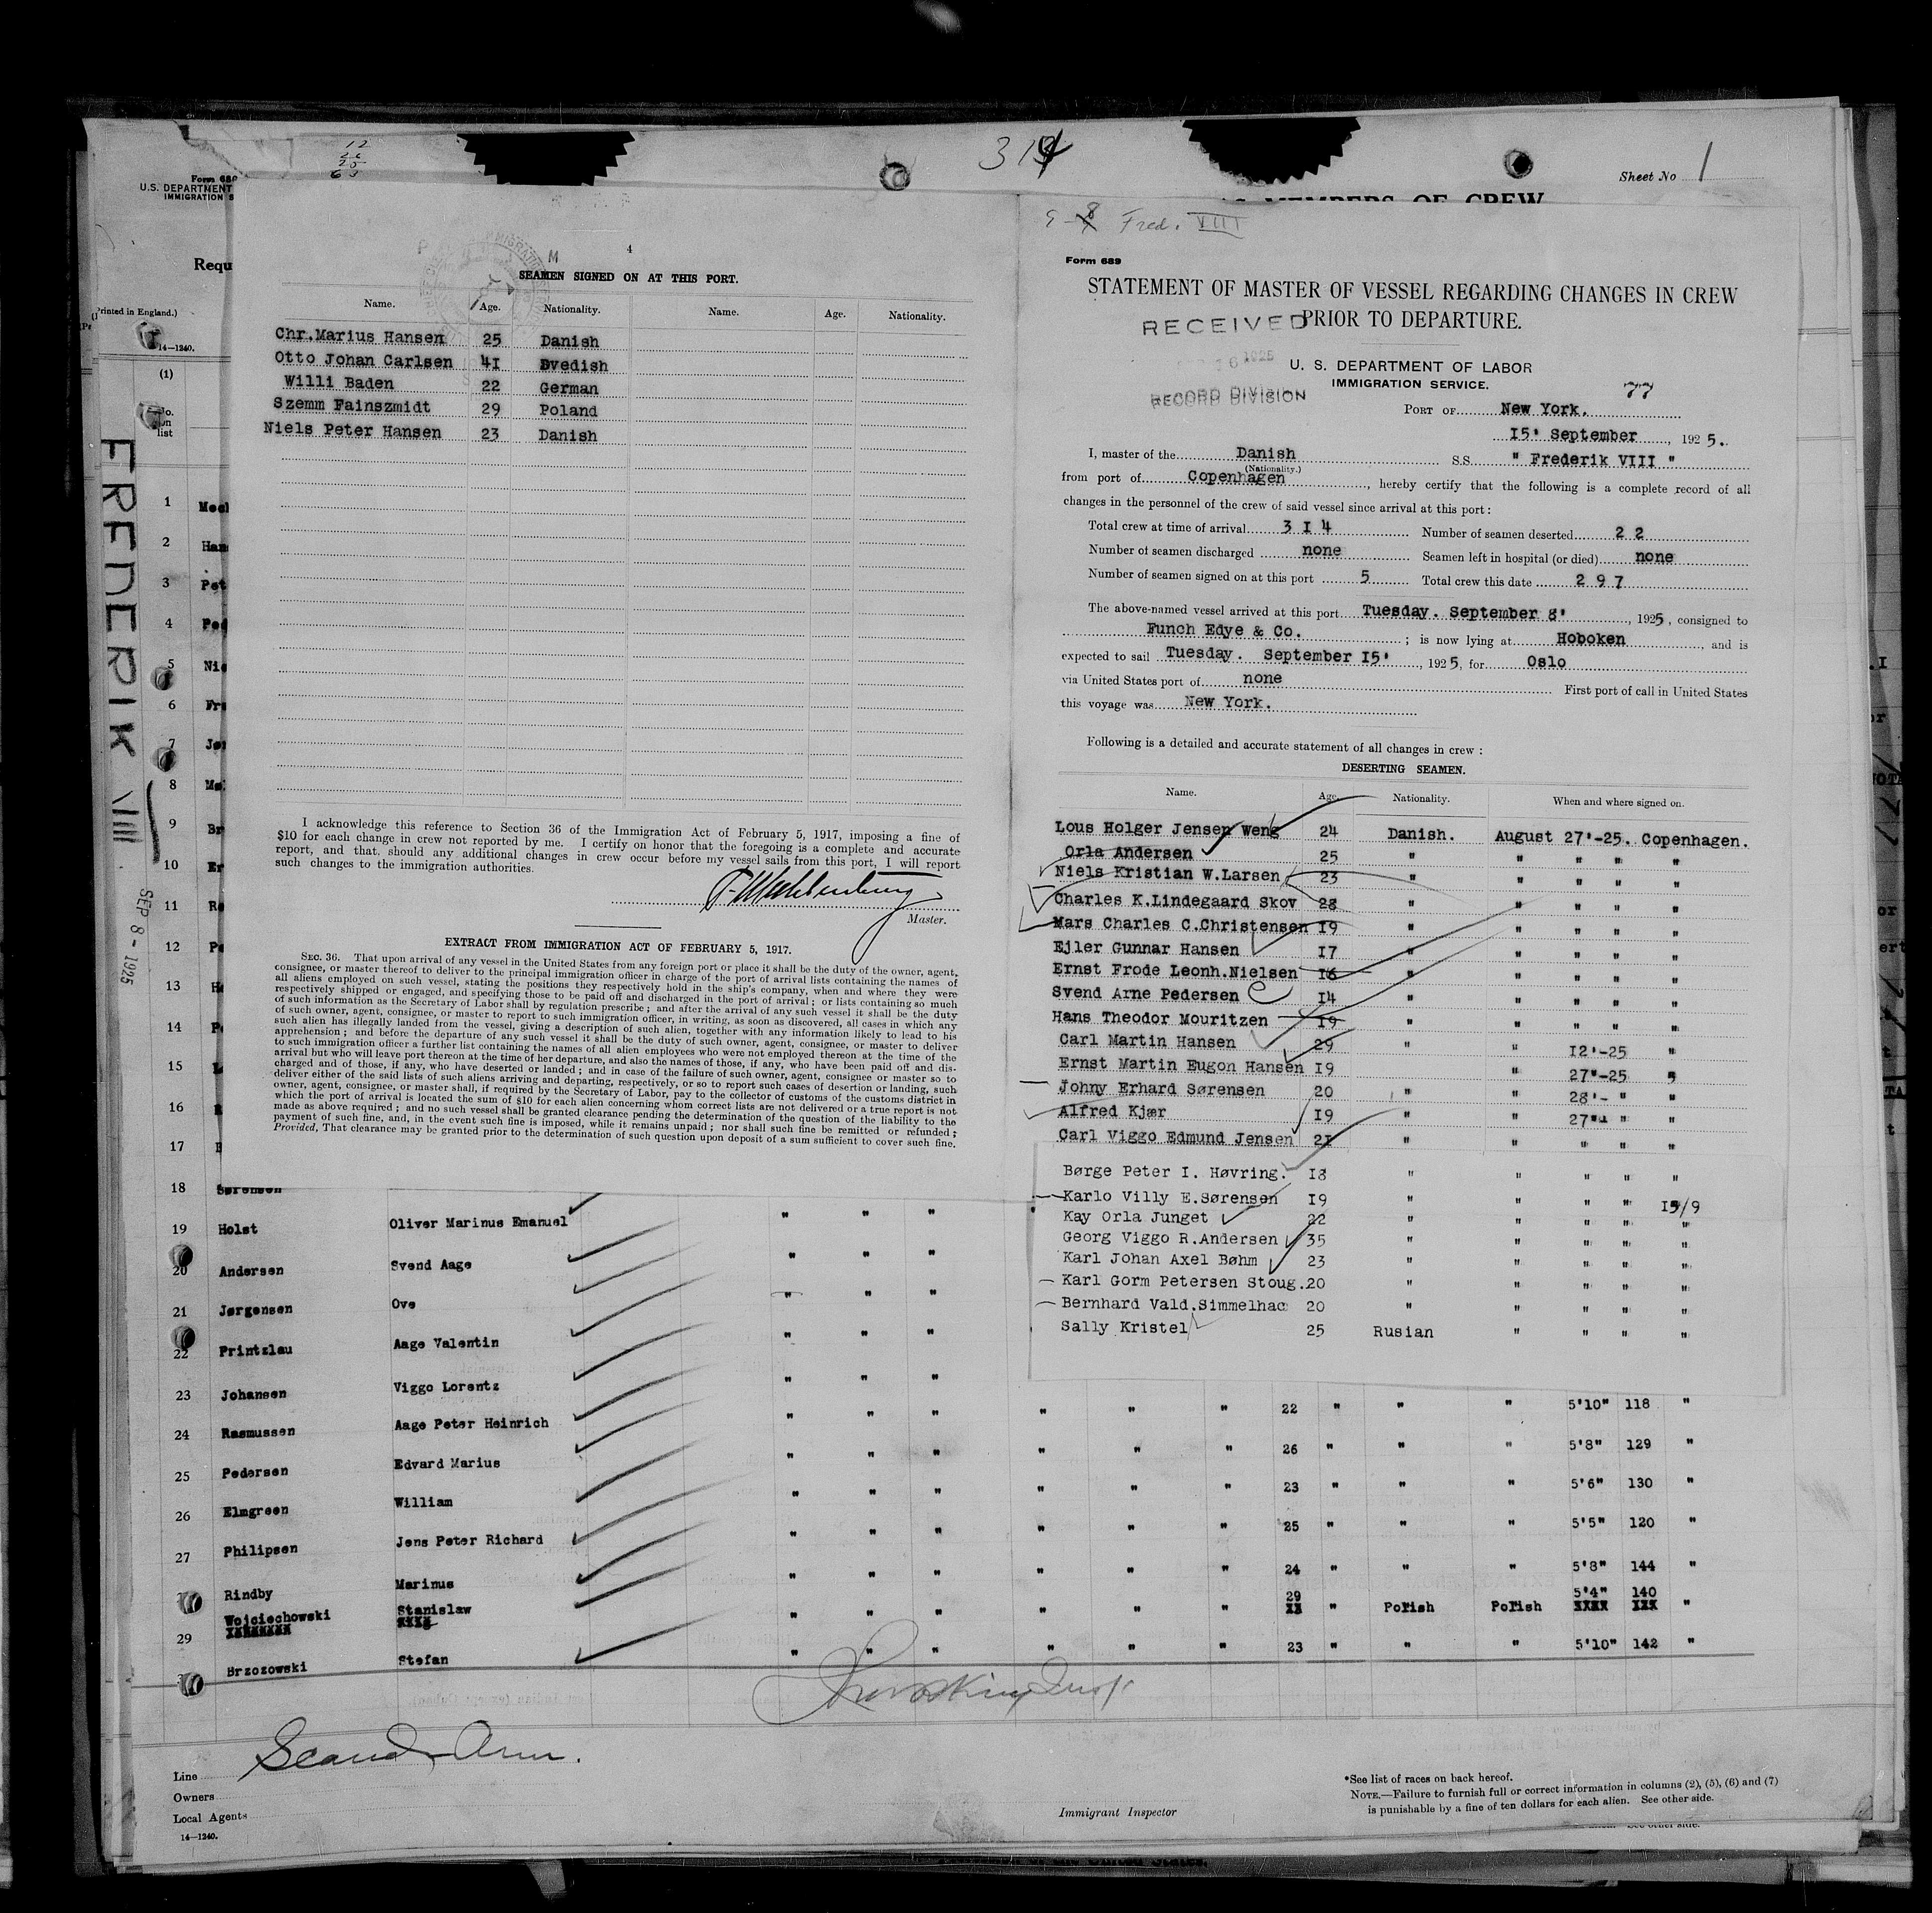 12
314
Sheet No 1
Form 689
U.S. DEPARTMENT
IMMIGRATION S
MEMBERS OF CREW
Requ
(Printed in England.)
14—1240.
(1)
No.
on
list
FREDERIK VIII
SEP 8 - 1925
4
SEAMEN SIGNED ON AT THIS PORT.
Name. Age. Nationality. Name. Age. Nationality.
Chr.Marius Hansen 25 Danish
Otto Johan Carlsen 4I Svedish
Willi Baden 22 German
Szemm Fainszmidt 29 Poland
Niels Peter Hansen 23 Danish
I acknowledge this reference to Section 36 of the Immigration Act of February 5, 1917, imposing a fine of
$10 for each change in crew not reported by me. I certify on honor that the foregoing is a complete and accurate
report, and that should any additional changes in crew occur before my vessel sails from this port, I will report
such changes to the immigration authorities.
Master.
EXTRACT FROM IMMIGRATION ACT OF FEBRUARY 5, 1917.
SEC. 36. That upon arrival of any vessel in the United States from any foreign port or place it shall be the duty of the owner, agent,
consignee, or master thereof to deliver to the principal immigration officer in charge of the port of arrival lists containing the names of
all aliens employed on such vessel, stating the positions they respectively hold in the ship's company, when and where they were
respectively shipped or engaged, and specifying those to be paid off and discharged in the port of arrival; or lists containing so much
of such information as the Secretary of Labor shall by regulation prescribe; and after the arrival of any such vessel it shall be the duty
of such owner, agent, consignee, or master to report to such immigration officer, in writing, as soon as discovered, all cases in which any
such alien has illegally landed from the vessel, giving a description of such alien, together with any information likely to lead to his
apprehension; and before the departure of any such vessel it shall be the duty of such owner, agent, consignee, or master to deliver
to such immigration officer a further list containing the names of all alien employees who were not employed thereon at the time of the
arrival but who will leave port thereon at the time of her departure, and also the names of those, if any, who have been paid off and dis-
charged and of those, if any, who have deserted or landed; and in case of the failure of such owner, agent, consignee or master so to
deliver either of the said lists of such aliens arriving and departing, respectively, or so to report such cases of desertion or landing, such
owner, agent, consignee, or master shall, if required by the Secretary of Labor, pay to the collector of customs of the customs district in
which the port of arrival is located the sum of $10 for each alien concerning whom correct lists are not delivered or a true report is not
made as above required; and no such vessel shall be granted clearance pending the determination of the question of the liability to the
payment of such fine, and, in the event such fine is imposed, while it remains unpaid; nor shall such fine be remitted or refunded;
Provided, That clearance may be granted prior to the determination of such question upon deposit of a sum sufficient to cover such fine.
Fred. VIII
Form 689
STATEMENT OF MASTER OF VESSEL REGARDING CHANGES IN CREW
PRIOR TO DEPARTURE.
RECEIVED
16 1925
RECORD DIVISION
U. S. DEPARTMENT OF LABOR
IMMIGRATION SERVICE.
77
PORT OF New York.
I5' September, 1925.
I, master of the Danish S.S. " Frederik VIII "
(Nationality.)
from port of Copenhagen, hereby certify that the following is a complete record of all
changes in the personnel of the crew of said vessel since arrival at this port:
Total crew at time of arrival 3 I 4 Number of seamen deserted 2 2
Number of seamen discharged none Seamen left in hospital (or died) none
Number of seamen signed on at this port 5 Total crew this date 2 9 7
The above-named vessel arrived at this port Tuesday. September 8', 1925, consigned to
Funch Edye & Co.; is now lying at Hoboken, and is
expected to sail Tuesday. September I5', 1925, for Oslo
via United States port of none First port of call in United States
this voyage was New York.
Following is a detailed and accurate statement of all changes in crew:
DESERTING SEAMEN.
Name. Age. Nationality. When and where signed on.
Lous Holger Jensen Weng 24 Danish. August 27'-25. Copenhagen.
Orla Andersen 25 " " " " "
Niels Kristian W.Larsen 23 " " " " "
Charles K.Lindegaard Skov 28 " " " " "
Mars Charles C.Christensen I9 " " " " "
Ejler Gunnar Hansen I7 " " " " "
Ernst Frode Leonh.Nielsen I6 " " " " "
Svend Arne Pedersen I4 " " " " "
Hans Theodor Mouritzen I9 " " " " "
Carl Martin Hansen 29 " " I2'-25 "
Ernst Martin Eugon Hansen I9 " 27"-25 "
Johny Erhard Sørensen 20 " " 28'- " "
Alfred Kjær I9 " " 27" " "
Carl Viggo Edmund Jensen 2I " " " " "
Børge Peter I. Høvring. I8 " " " " "
Karlo Villy E.Sørensen I9 " " " " I5/9
Kay Orla Junget 22 " " " " "
Georg Viggo R.Andersen 35 " " " " "
Karl Johan Axel Bøhm 23 " " " " "
Karl Gorm Petersen Stoug. 20 " " " " "
Bernhard Vald.Simmelhac 20 " " " " "
Sally Kristel 25 Rusian " " " "
1
2
3
4
5
6
7
8
9
10
11
12
13
14
15
16
17
18 Sørensen
19 Holst Oliver Marinus Emanuel " " "
20 Andersen Svend Aage " " "
21 Jørgensen Ove " " "
22 Printzlau Aage Valentin " " "
23 Johansen Viggo Lorentz " " "
24 Rasmussen Aage Peter Heinrich " " " " " " 22 " " " 5'10" 118 "
25 Pedersen Edvard Marius " " " " " " 26 " " " 5'8" 129 "
26 Elmgreen William " " " " " " 23 " " " 5'6" 130 "
27 Philipsen Jens Peter Richard " " " " " " 25 " " " 5'5" 120 "
Rindby Marinus " " " " " " 24 " " " 5'8" 144 "
29 Wojciechowski Stanislaw " " " " " " 29 " Polish Polish 5'4" 140 "
Brzozowski Stefan " " " " " " 23 " " " 5'10" 142 "
Line Scand-Am.
Owners
Local Agents
14—1240.
Immigrant Inspector
*See list of races on back hereof.
NOTE.—Failure to furnish full or correct information in columns (2), (5), (6) and (7)
is punishable by a fine of ten dollars for each alien. See other side.